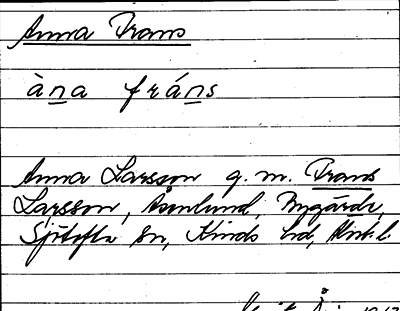 Anna Frans
àna fráns
Anna Larsson g. m. Frans
Larsson, Åsmlund, Nygärde,
Sjötofta sn, Kinds hd,